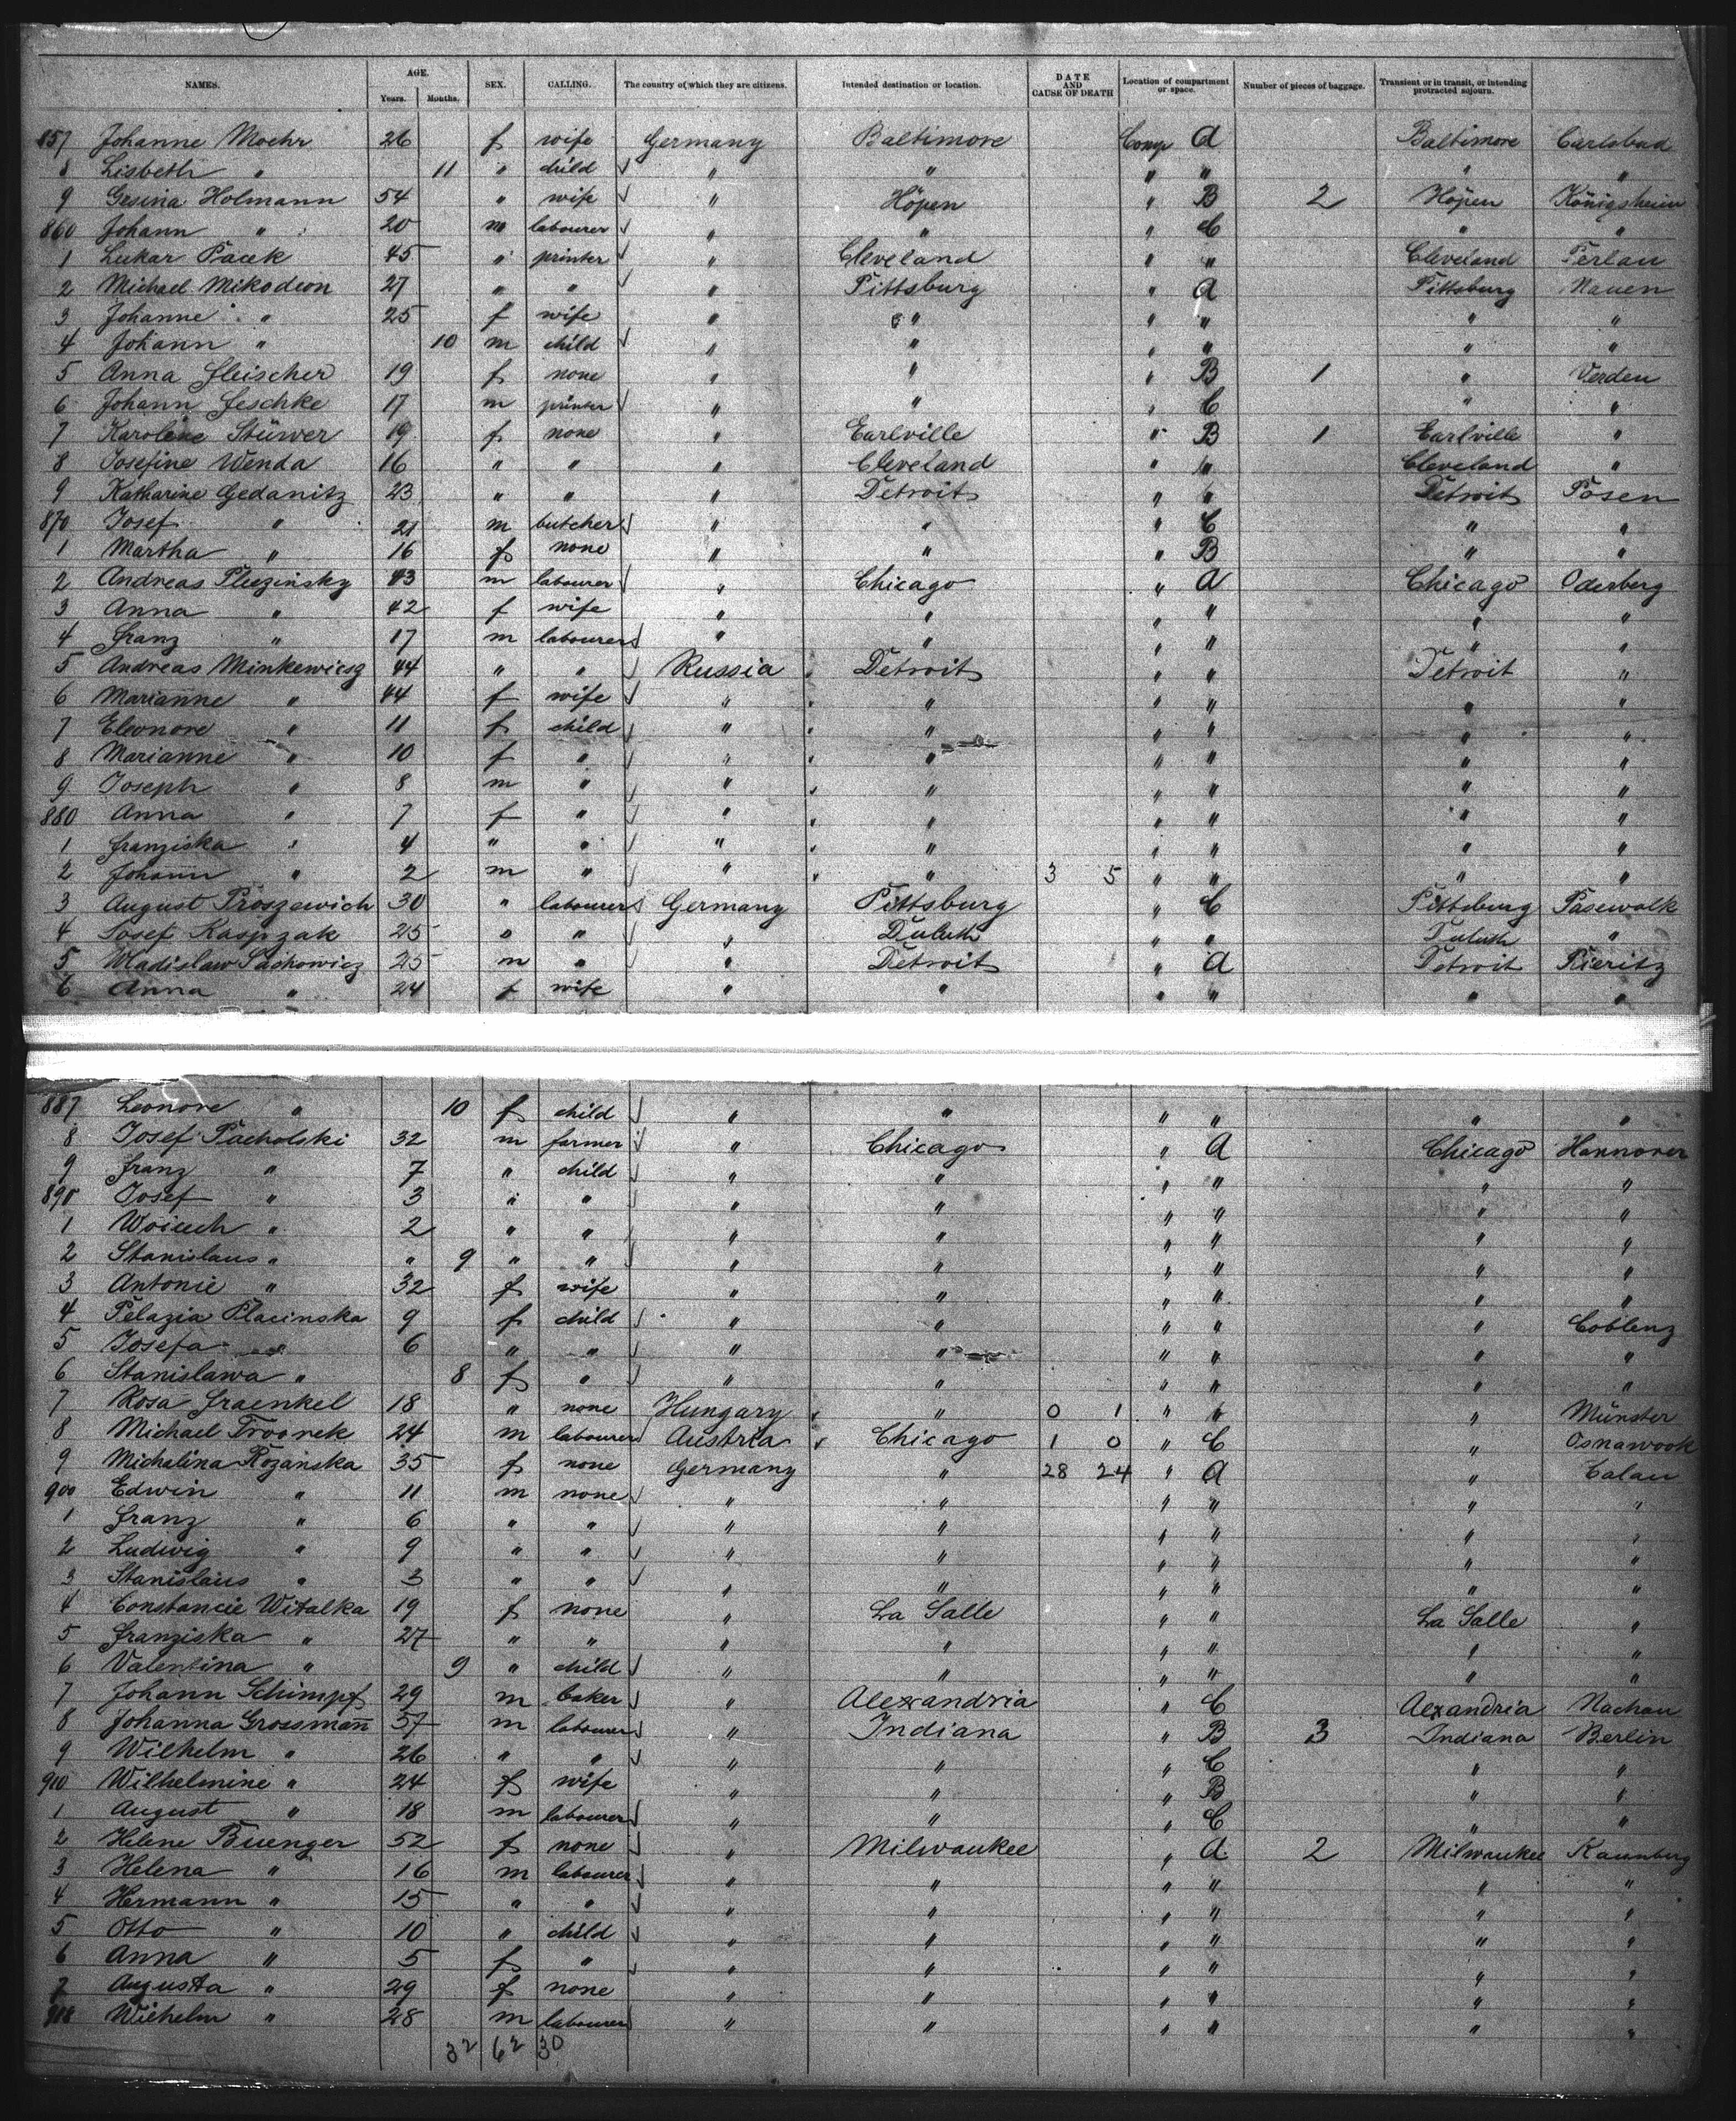 NAMES. AGE. Years. Months. SEX. CALLING. The country of which they are citizens. Intended destination or location. DATE AND CAUSE OF DEATH Location of compartment or space. Number of pieces of baggage. Transient or in transit, or intending protracted sojourn.
857 Johanne Moehr 26 f wife Germany Baltimore Comp A Baltimore Carlsbad
8 Lisbeth " 11 " child " " " " " "
9 Gesina Holmann 54 " wife " Höpen " B 2 Höpen Königsheim
860 Johann " 20 m labourer " " " C " "
1 Lukar Pacek 45 " printer " Cleveland " " Cleveland Perlau
2 Michael Mikodeon 27 " " " Pittsburg " A Pittsburg Nauen
3 Johanne " 25 f wife " " " " " "
4 Johann " 10 m child " " " " " "
5 Anna Fleischer 19 f none " " " B 1 " Verden
6 Johann Jeschke 17 m printer " " " C " "
7 Karoline Stüwer 19 f none " Earlville " B 1 Earlville "
8 Josefine Wenda 16 " " " Cleveland " " Cleveland "
9 Katharine Gedanitz 23 " " " Detroit " " Detroit Posen
870 Josef " 21 m butcher " " " C " "
1 Martha " 16 f none " " " B " "
2 Andreas Pluzinsky 43 m labourer " Chicago " A Chicago Oderberg
3 Anna " 42 f wife " " " " " "
4 Franz " 17 m labourer " " " " " "
5 Andreas Minkewicsz 44 " " Russia Detroit " " Detroit "
6 Marianne " 44 f wife " " " " " "
7 Eleonore " 11 f child " " " " " "
8 Marianne " 10 f " " " " " " "
9 Joseph " 8 m " " " " " " "
880 Anna " 7 f " " " " " " "
1 Franziska " 4 " " " " " " " "
2 Johann " 2 m " " " 3 5 " " " "
3 August Proszewich 30 " labourer Germany Pittsburg " C Pittsburg Pasewalk
4 Josef Kaspzak 25 " " " Duluth " " Duluth "
5 Wladislaw Sachowicz 25 m " " Detroit " A Detroit Rieritz
6 Anna " 24 f wife " " " " " "
887 Leonore " 10 f child " " " " " "
8 Josef Pacholski 32 m farmer " Chicago " A Chicago Hannover
9 Franz " 7 " child " " " " " "
890 Josef " 3 " " " " " " " "
1 Woicech " 2 " " " " " " " "
2 Stanislaus " " 9 " " " " " " " "
3 Antonie " 32 f wife " " " " " "
4 Pelazia Placinska 9 f child " " " " " Coblenz
5 Josefa " 6 " " " " " " " "
6 Stanislawa " 8 f " " " " " " "
7 Rosa Fraenkel 18 " none Hungary " 0 1 " " " Münster
8 Michael Troonek 24 m labourer Austria Chicago 1 0 " C " Osnawook
9 Michalina Rozanska 35 f none Germany " 28 24 " A " Calau
900 Edwin " 11 m none " " " " " "
1 Franz " 6 " " " " " " " "
2 Ludwig " 9 " " " " " " " "
3 Stanislaus " 3 " " " " " " " "
4 Constancie Witalka 19 f none " La Salle " " La Salle "
5 Franziska " 27 " " " " " " " "
6 Valentina " 9 " child " " " " " "
7 Johann Schimpf 29 m baker " Alexandria " C Alexandria Nachau
8 Johanna Grossmann 57 m labourer " Indiana " B 3 Indiana Berlin
9 Wilhelm " 26 " " " " " C " "
910 Wilhelmine " 24 f wife " " " B " "
1 August " 18 m labourer " " " C " "
2 Helene Buenger 52 f none " Milwaukee " A 2 Milwaukee Raumburg
3 Helena " 16 m labourer " " " " " "
4 Hermann " 15 " " " " " " " "
5 Otto " 10 " child " " " " " "
6 Anna " 5 f " " " " " " "
7 Augusta " 29 f none " " " " " "
918 Wilhelm " 28 m labourer " " " " " "
32 62 30